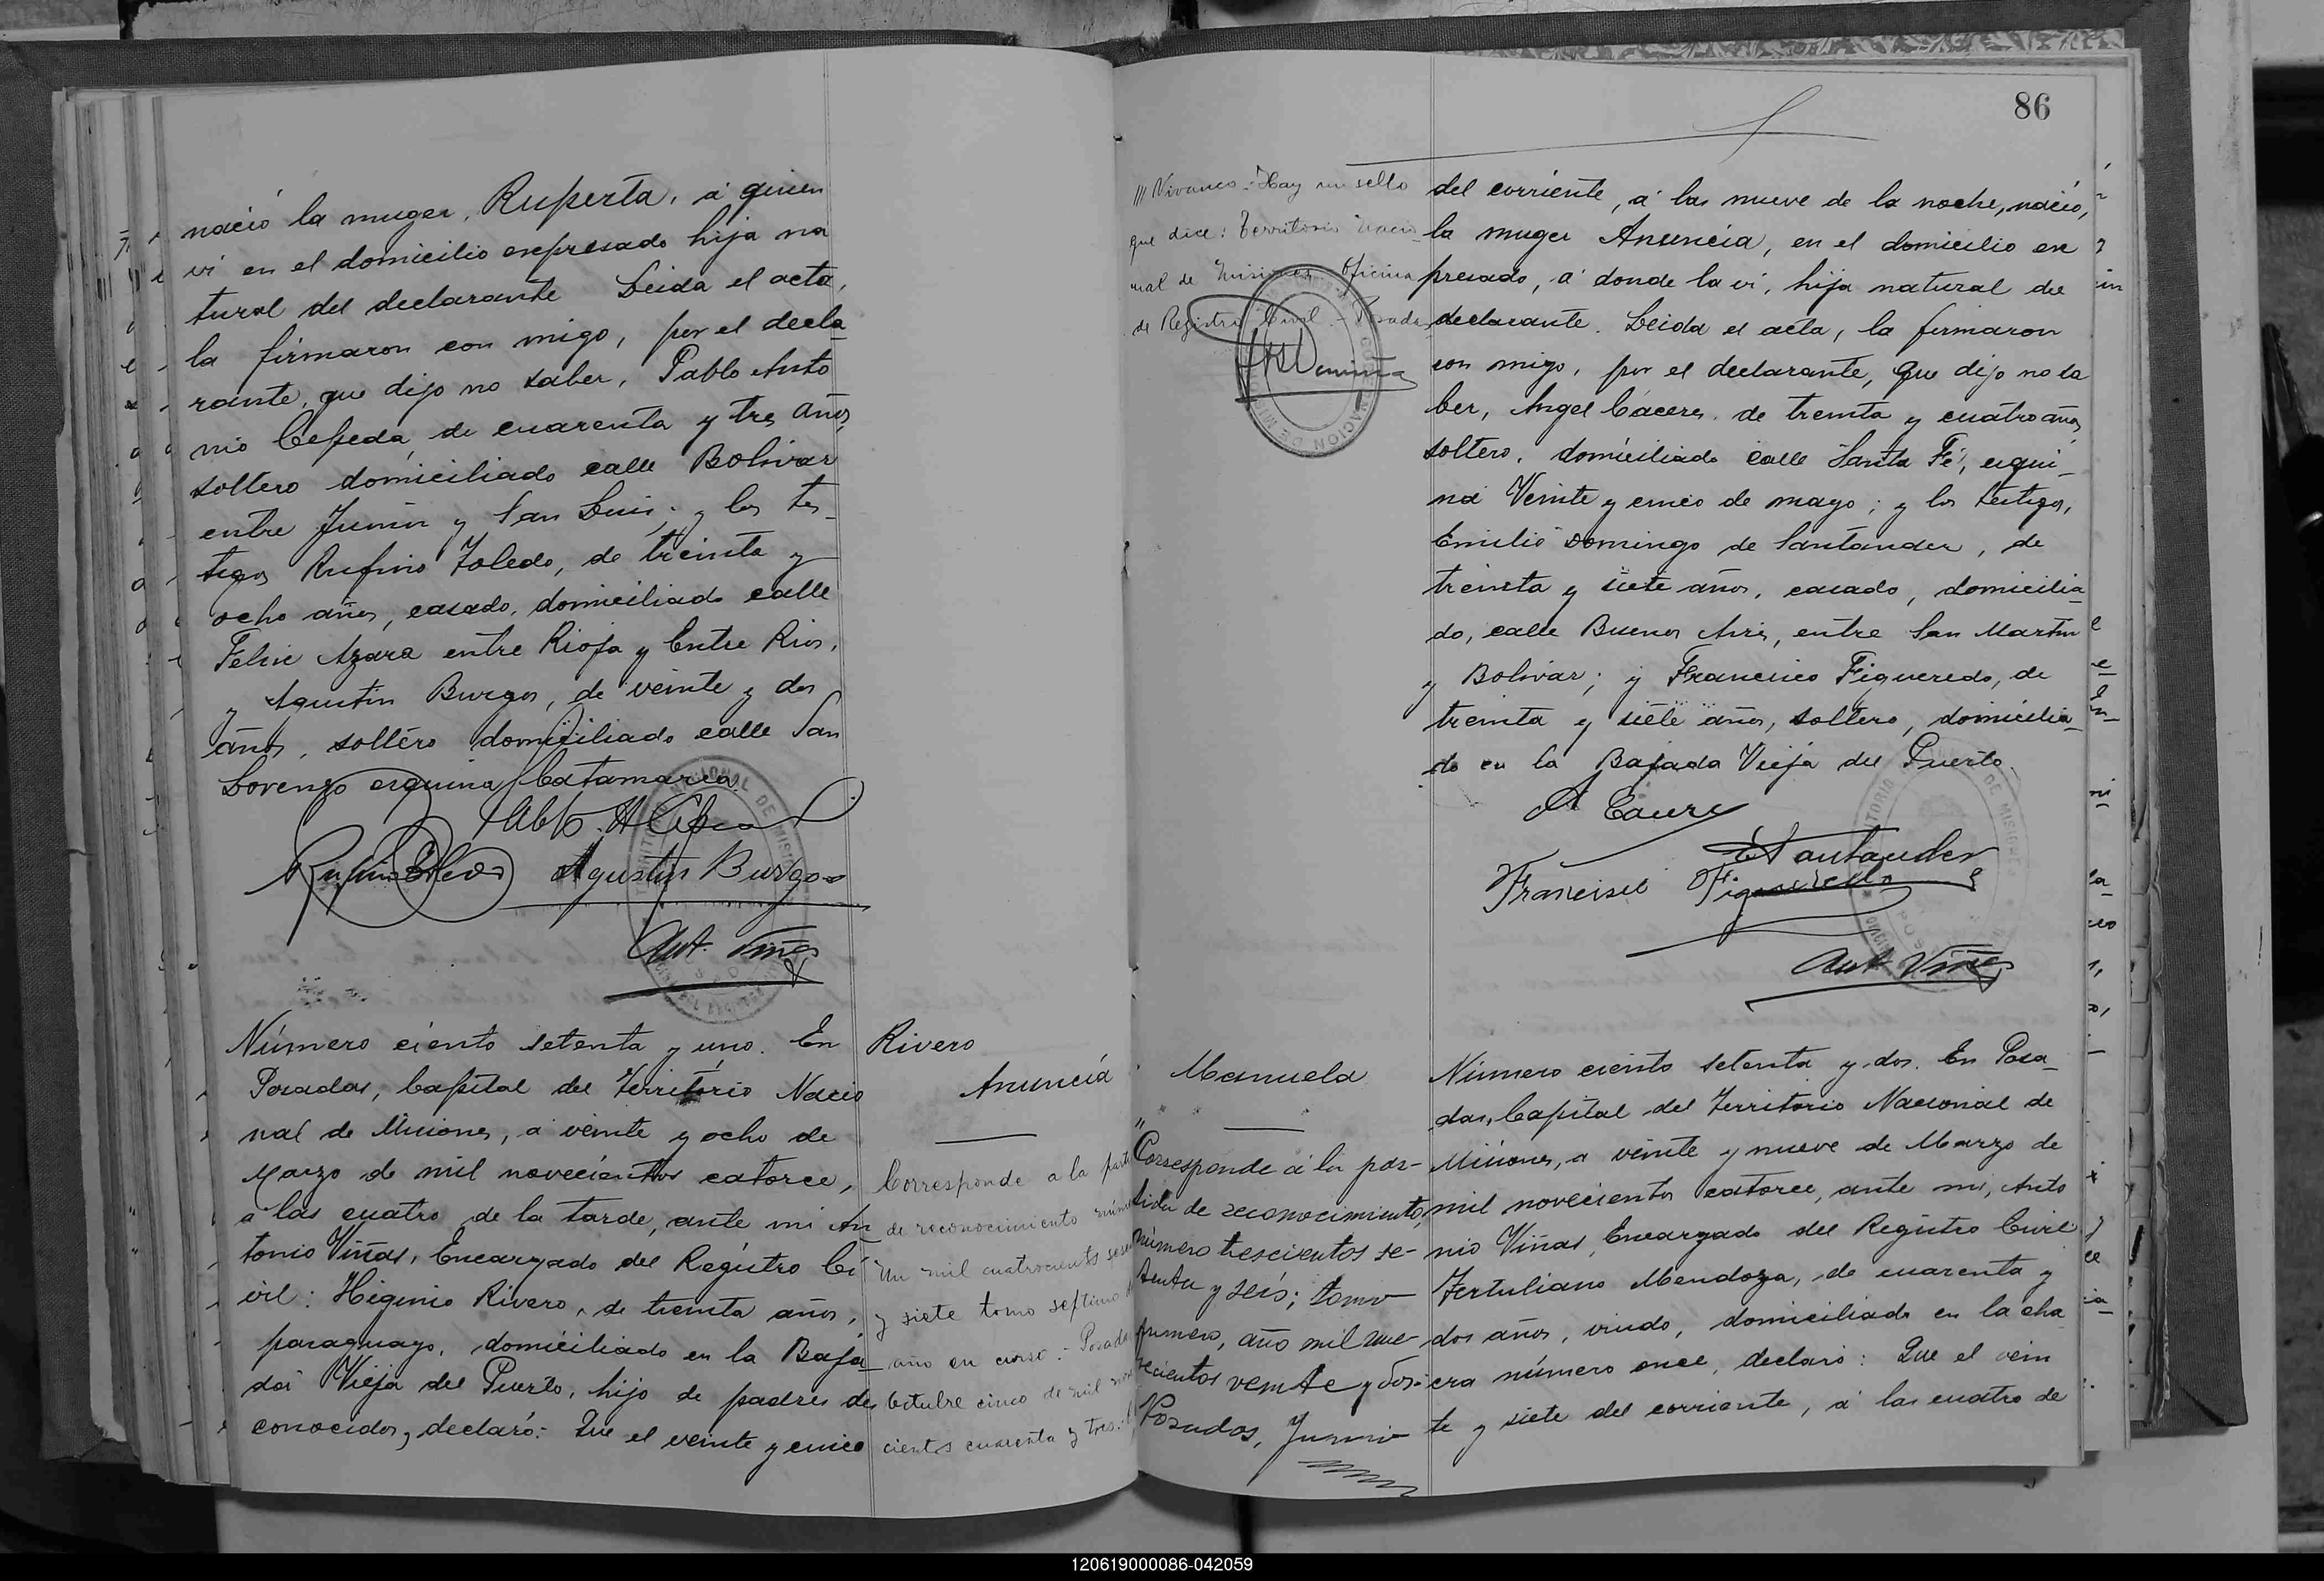 nació la muger, Ruperta, á quien
vi en el domicilio expresado hija na
tural del declarante Leida el acta,
la firmaron con migo, por el decla
rante, que dijo no saber, Pablo Anto
nio Cepeda, de cuarenta y tres años,
soltero domiciliado calle Bolivar
entre Junin y San Luis; y los tes
tigos Rufino Toledo, de treinta y
ocho años, casado, domiciliado calle
Felix Azara entre Rioja y Entre Rios,
y Agustin Burgos, de veinte y dos
años, soltero domiciliado calle San
Lorenzo esquina Catamarca.
Rufino Toledo Agustin Burgos
Ant. Viñas
Número ciento setenta y uno. En
Posadas, Capital del Territorio Nacio
nal de Misiones, a veinte y ocho de
Marzo de mil novecientos catorce,
a las cuatro de la tarde, ante mi An
tonio Viñas, Encargado del Registro Ci
vil: Higinio Rivero, de treinta años,
paraguayo, domiciliado en la Baja
da Vieja del Puerto, hijo de padres des
conocidos, declaró: Que el veinte y cinco
Rivero
Anuncia
Corresponde a la parti
de reconocimiento núm
un mil cuatrocientos sese
y siete tomo septimo
año en curso.- Posadas
Octubre cinco de mil nove
cientos cuarenta y tres.
86
/// Vivanco.- Hay un sello
que dice: Territorio Nacio
nal de Misiones Oficina
de Registro Civil - Posadas
del corriente, á las nueve de la noche, nació,
la muger Anuncia, en el domicilio ex
presado, á donde la vi, hija natural del
declarante. Leida el acta, la firmaron
con migo, por el declarante, que dijo no sa
ber, Angel Cáceres, de treinta y cuatro años,
soltero, domiciliado calle Santa Fé, esqui-
na Veinte y cinco de mayo; y los testigos,
Emilio Domingo de Santander, de
treinta y siete años, casado, domicilia-
do, calle Buenos Aires, entre San Martin
y Bolivar; y Francisco Figueredo, de
treinta y siete años, soltero, domicilia-
do en la Bajada Vieja del Puerto.
E Santander
Francisco Figueredo
Ant. Viñas
Manuela
"Corresponde á la par-
tida de reconocimiento,
número trescientos se-
tenta y seis; tomo
primero, año mil nue-
vecientos veinte y dos.-
Posadas, Junio
Número ciento setenta y dos. En Posa-
das, Capital del Territorio Nacional de
Misiones, a veinte y nueve de Marzo de
mil novecientos catorce, ante mi, Anto
nio Viñas, Encargado del Registro Civil
Tertuliano Mendoza, de cuarenta y
dos años, viudo, domiciliado en la cha
cra número once, declaró: Que el vein
te y siete del corriente, á las cuatro de
120619000086-042059